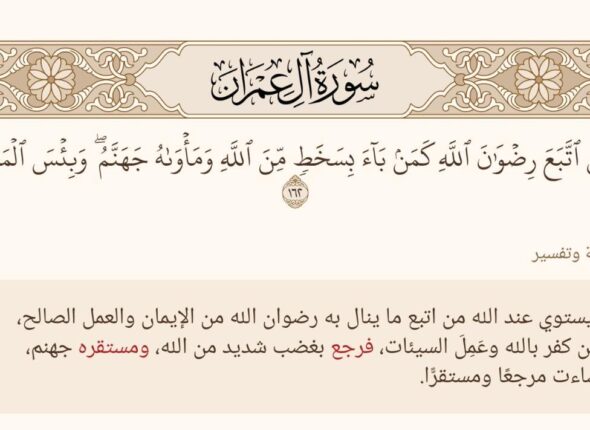 سُورَةُ آلِ عِمْرَانَ
ٱتَّبَعَ رِضْوَٰنَ ٱللَّهِ كَمَنۢ بَآءَ بِسَخَطٍ مِّنَ ٱللَّهِ وَمَأْوَىٰهُ جَهَنَّمُ ۖ وَبِئْسَ
١٦٢
وتفسير
يستوي عند الله من اتبع ما ينال به رضوان الله من الإيمان والعمل الصالح،
كفر بالله وعَمِلَ السيئات، فرجع بغضب شديد من الله، ومستقره جهنم،
مرجعًا ومستقرًّا.